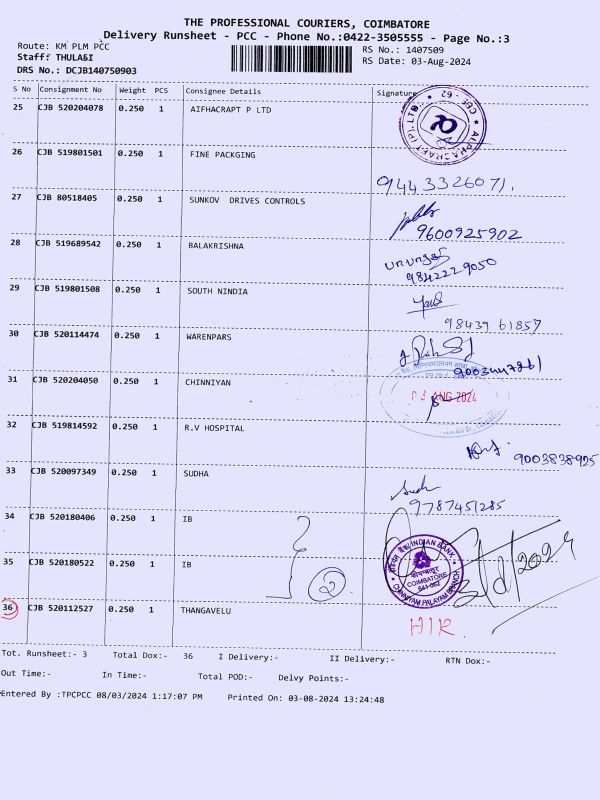 THE PROFESSIONAL COURIERS, COIMBATORE
Delivery Runsheet - PCC - Phone No.:0422-3505555 - Page No.:3
Route: KM PLM PCC RS No.: 1407509
Staff: THULASI RS Date: 03-Aug-2024
DRS No.: DCJB140750903
S No Consignment No Weight PCS Consignee Details Signature
25 CJB 520204078 0.250 1 AIFHACRAPT P LTD
ALPHACRAFT (P) LTD. ★ CBE - 62 ★
26 CJB 519801501 0.250 1 FINE PACKGING
9443326071.
27 CJB 80518405 0.250 1 SUNKOV DRIVES CONTROLS
9600925902
28 CJB 519689542 0.250 1 BALAKRISHNA
9842229050
29 CJB 519801508 0.250 1 SOUTH NINDIA
98439 61857
30 CJB 520114474 0.250 1 WARENPARS
31 CJB 520204050 0.250 1 CHINNIYAN
03 AUG 2024
32 CJB 519814592 0.250 1 R.V HOSPITAL
9003838925
33 CJB 520097349 0.250 1 SUDHA
9787451285
34 CJB 520180406 0.250 1 IB
35 CJB 520180522 0.250 1 IB
2
INDIAN BANK
COIMBATORE
641-062
CHINNIYAM PALAYAM BRANCH
36 CJB 520112527 0.250 1 THANGAVELU
HIR.
Tot. Runsheet:- 3 Total Dox:- 36 I Delivery:- II Delivery:- RTN Dox:-
Out Time:- In Time:- Total POD:- Delvy Points:-
Entered By :TPCPCC 08/03/2024 1:17:07 PM Printed On: 03-08-2024 13:24:48